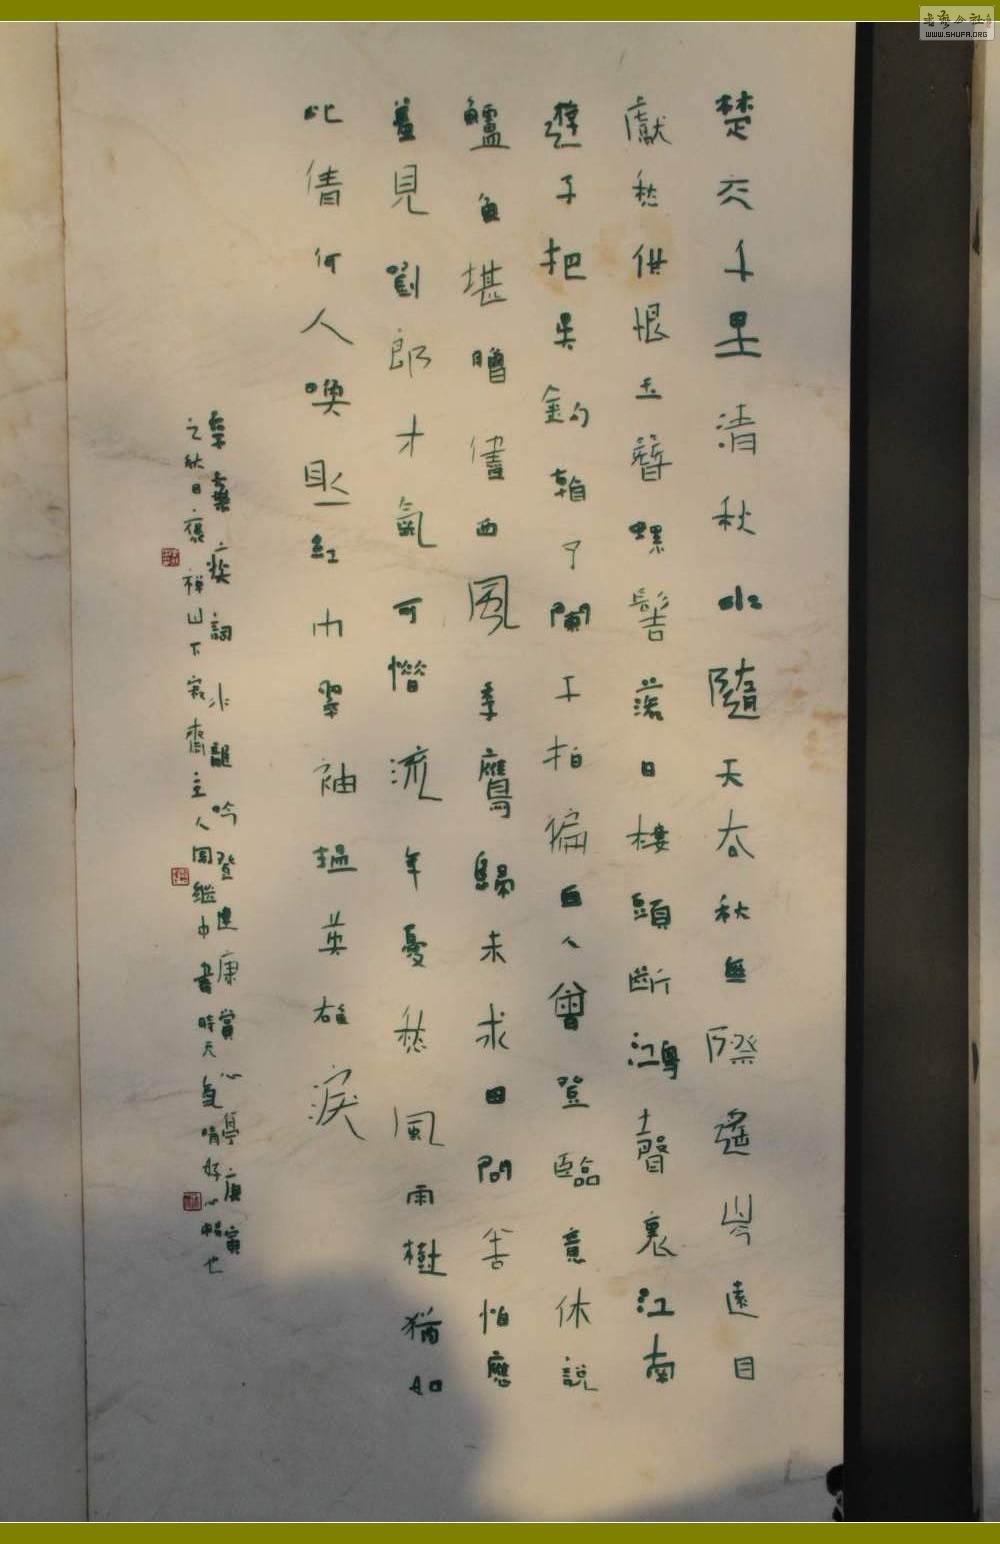 楚天千里清秋水隨天去秋無際遙岑遠目
獻愁供恨玉簪螺髻落日樓頭斷鴻聲裏江南
遊子把吳鉤看了闌干拍徧無人會登臨意休說
鱸魚堪膾儘西風季鷹歸未求田問舍怕應
羞見劉郎才氣可惜流年憂愁風雨樹猶如
此倩何人喚取紅巾翠袖搵英雄淚
辛棄疾詞水龍吟登建康賞心亭庚寅
之秋日褒禪山下寂齋主人周繼中書時天氣晴好心暢也
WWW.SHUFA.ORG